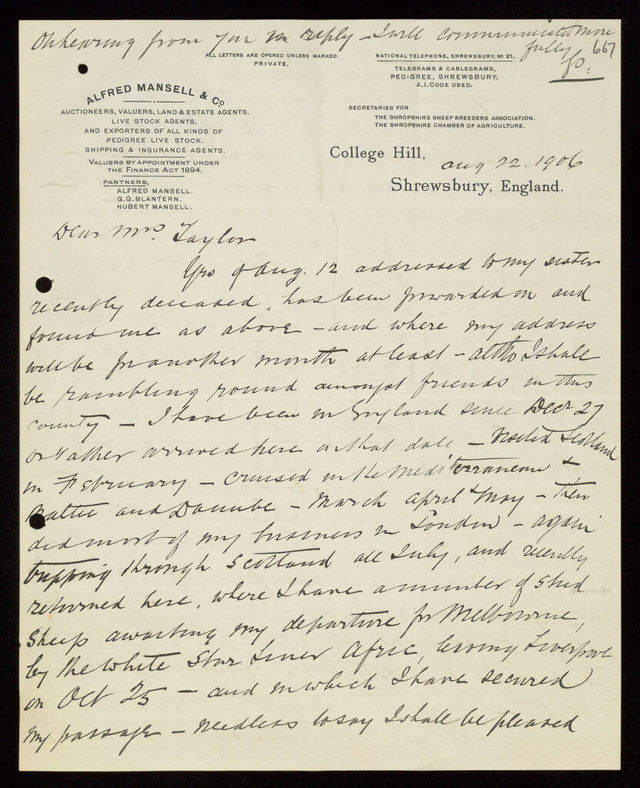 On hearing from you in reply - I will communicate more
fully
Jo.
667
ALL LETTERS ARE OPENED UNLESS MARKED
PRIVATE.
NATIONAL TELEPHONE, SHREWSBURY, Nº 21.
TELEGRAMS & CABLEGRAMS,
PEDIGREE, SHREWSBURY.
A.I. CODE USED.
ALFRED MANSELL & Co
AUCTIONEERS, VALUERS, LAND & ESTATE AGENTS,
LIVE STOCK AGENTS,
AND EXPORTERS OF ALL KINDS OF
PEDIGREE LIVE STOCK.
SHIPPING & INSURANCE AGENTS.
VALUERS BY APPOINTMENT UNDER
THE FINANCE ACT 1894.
PARTNERS,
ALFRED MANSELL.
G.G. BLANTERN.
HUBERT MANSELL.
SECRETARIES FOR
THE SHROPSHIRE SHEEP BREEDERS ASSOCIATION.
THE SHROPSHIRE CHAMBER OF AGRICULTURE.
College Hill,
Aug 22. 1906
Shrewsbury, England.
Dear Mrs. Taylor
Yrs of Aug. 12 addressed to my sister
recently deceased, has been forwarded on and
found me as above - and where my address
will be for another month at least - altho I shall
be rambling round amongst friends in this
county - I have been in England since Decr 27
or rather arrived here on that date - Visited Scotland
in February - cruised in the Mediterranean &
Baltic and Danube - March April & May - then
did most of my business in London - again
tripping through Scotland all July, and recently
returned here, where I have a number of stud
Sheep awaiting my departure for Melbourne,
by the White Star Liner Afric, leaving Liverpool
on Oct 25 - and in which I have secured
my passage - needless to say I shall be pleased